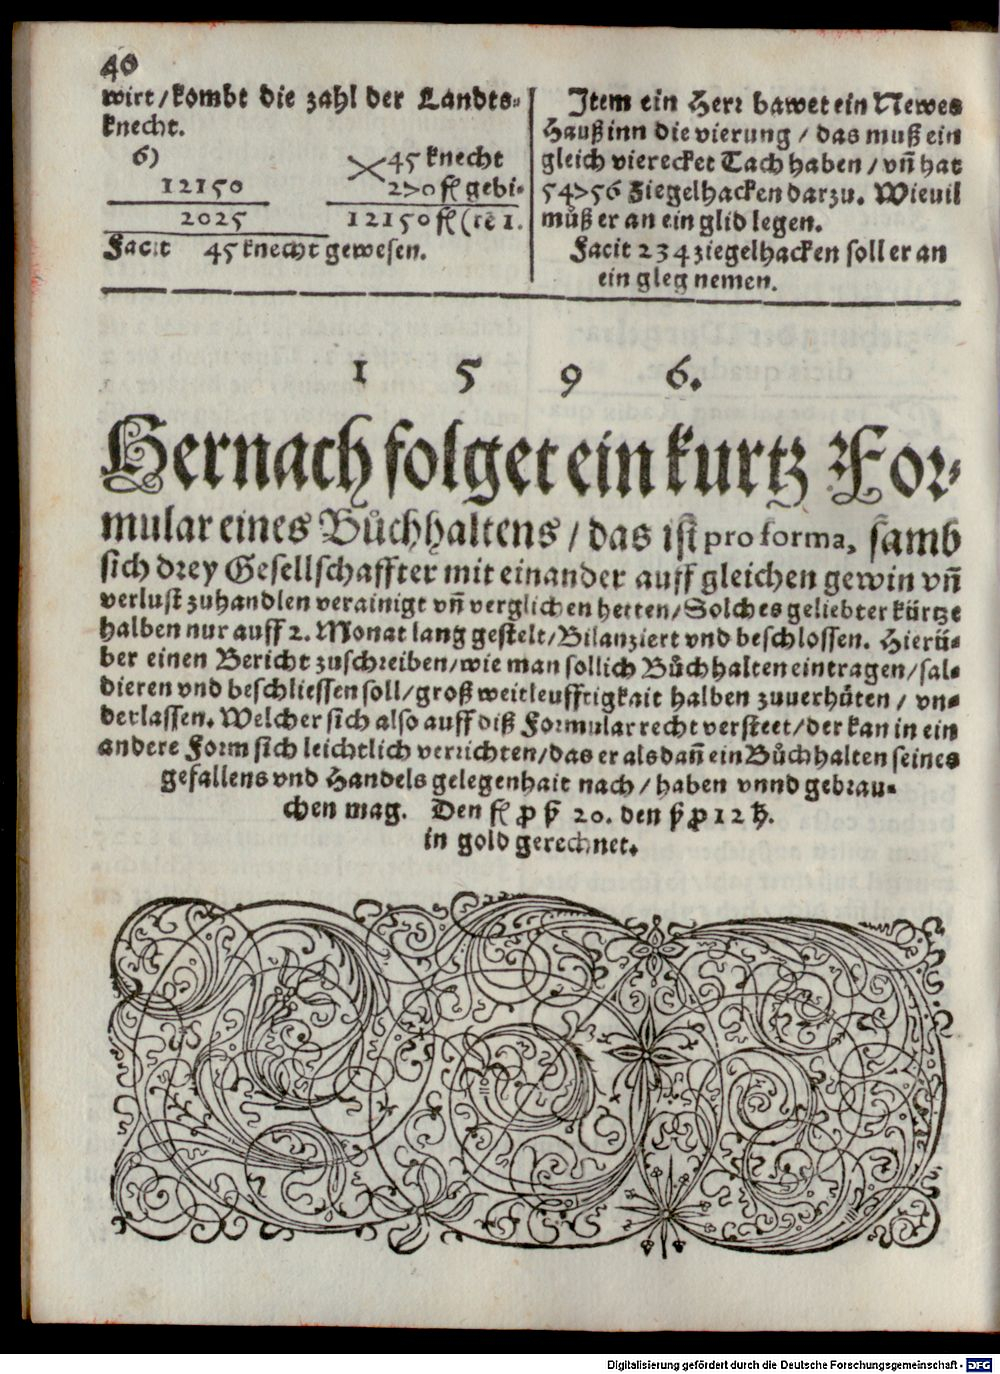 40
wirt/kombt die zahl der Landts-
knecht.
6)
12150
2025
45 knecht
270 fl gebi-
12150 fl (rē 1.
Facit 45 knecht gewesen.
Item ein Herr bawet ein Newes
Hauß inn die vierung / das muß ein
gleich vierecket Tach haben / vñ hat
54756 Ziegelhacken darzu. Wieuil
můß er an ein glid legen.
Facit 234 ziegelhacken soll er an
ein gleg nemen.
1 5 9 6.
Hernach folget ein kurtz For-
mular eines Bůchhaltens / das ist pro forma, samb
sich drey Gesellschaffter mit einander auff gleichen gewin vñ
verlust zuhandlen verainigt vñ verglichen hetten/Solches geliebter kürtze
halben nur auff 2. Monat lang gestelt/Bilanziert vnd beschlossen. Hierü-
ber einen Bericht zuschreiben/wie man sollich Bůchhalten eintragen/sal-
dieren vnd beschliessen soll/groß weitleufftigkait halben zuuerhůten / vn-
derlassen. Welcher sich also auff diß Formular recht versteet/der kan in ein
andere Form sich leichtlich verrichten/das er alsdañ ein Bůchhalten seines
gefallens vnd Handels gelegenhait nach / haben vnnd gebrau-
chen mag. Den fl p ß 20. den ß p 12 hl.
in gold gerechnet.
Digitalisierung gefördert durch die Deutsche Forschungsgemeinschaft - DFG